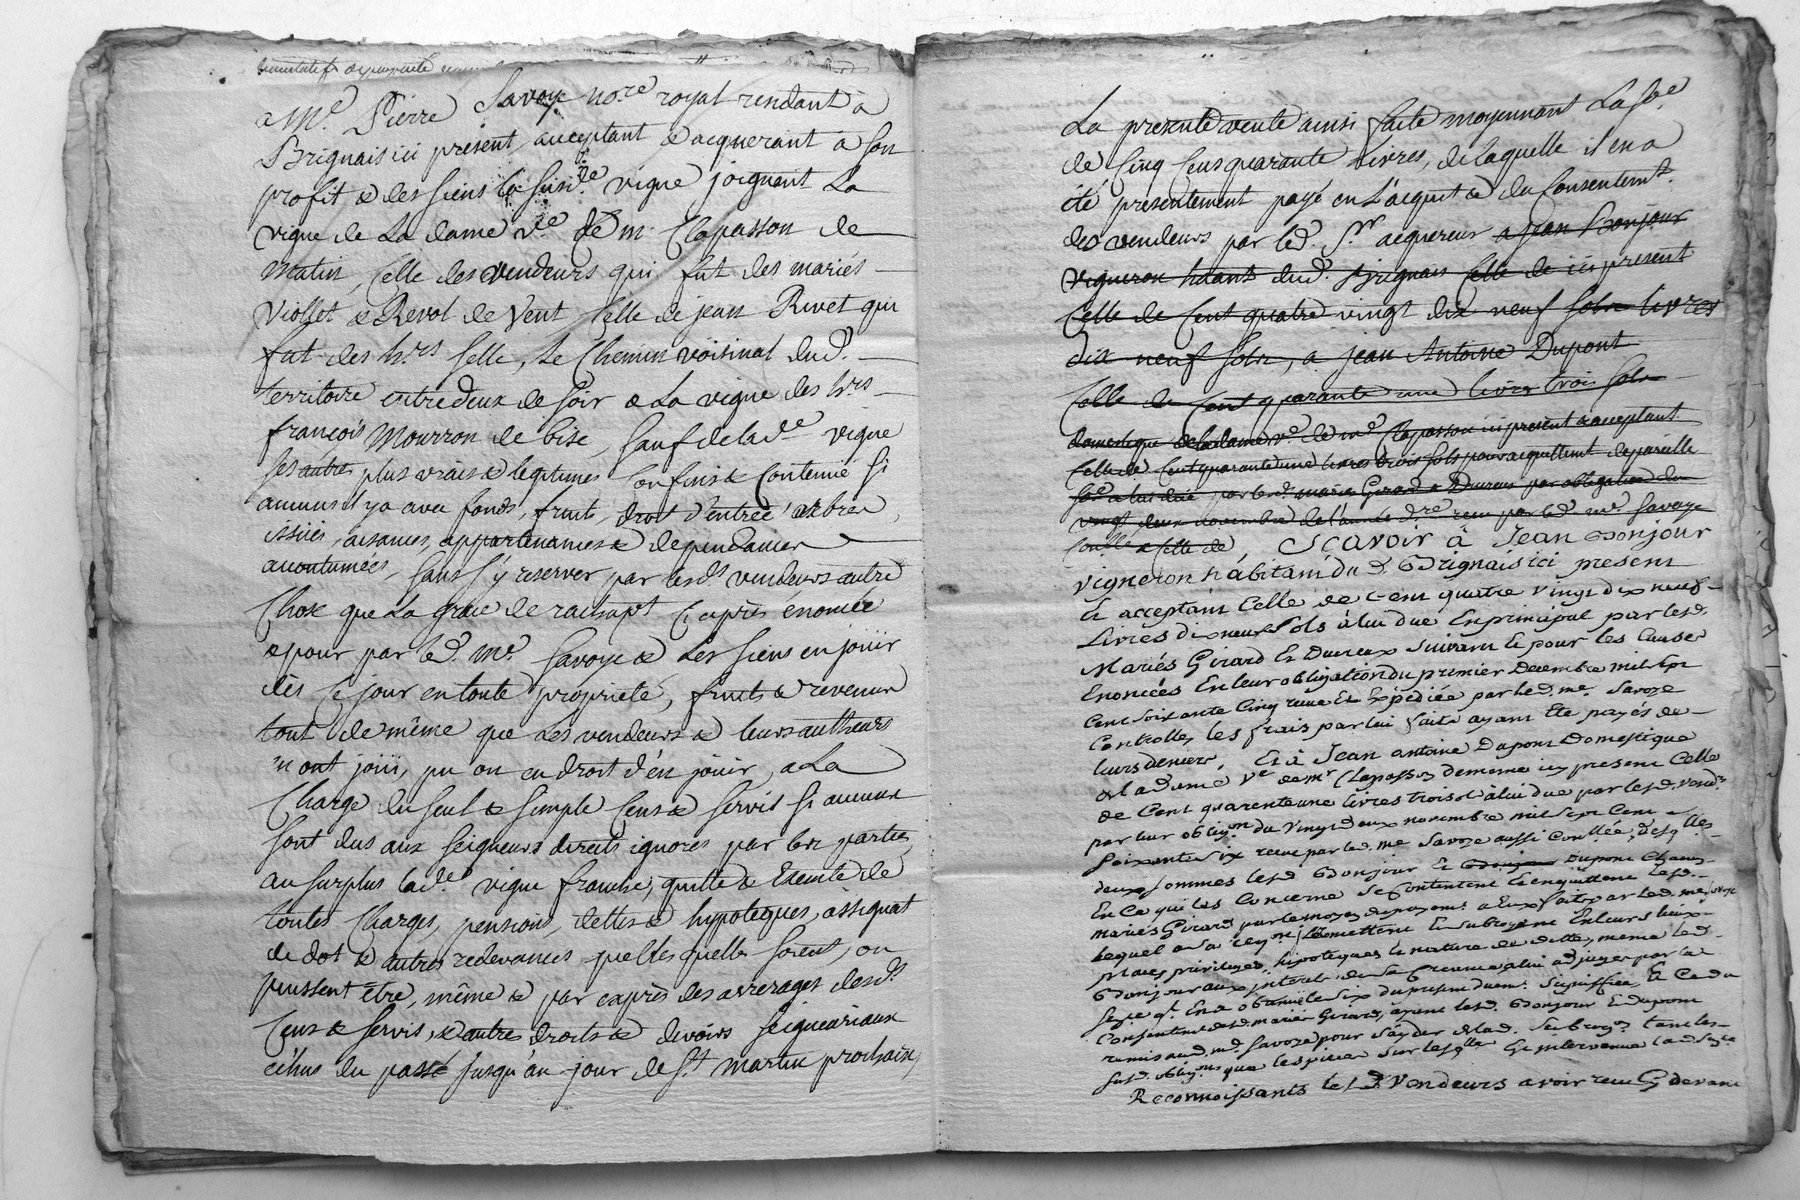 translatif de propriété
a Me. Pierre Savoye no.re royal residant à
Brignais ici présent, acceptant & acquerant a son
profit & des siens la susd.e vigne joignant La
vigne de La dame v.e de m. Clapasson de
matin, Celle des vendeurs qui fut des mariés
Viollet & Revol de Vent Celle de jean Rivet qui
fut des h.rs Selle, Le Chemin voisinal dud.
territoire entredeux de soir & La vigne des h.rs
françois Mourron de bise, Sauf de lad.e vigne
ses autres plus vrais & legitimes Confins & Contenüe si
aucuns il y a avec fonds, fruits, droit d'entrée arbres,
issües, aisances, appartenances & dependances
accoutumées, Sans s'y reserver par lesd.s vendeurs autre
Chose que La grace de rachapt Cy après énoncée
& pour par led. Me. Savoye & Les siens en joüir
dès Ce jour en toute propriété, fruits & revenus
tout de même que Les vendeurs & leurs autheurs
n ont joüi, pu ou eu droit d'en joüir, a La
Charge du seul & simple Cens & servis si aucuns
sont dus aux seigneurs directs ignorés par les parties,
au surplus lad.e vigne franche, quitte & Exempte de
toutes Charges, pensions, dettes & hypoteques, assignat
de dot & autres redevances quelles quelles soient, ou
pussent être, même & par exprès des arrerages desd.s
Cens & servis, & autres droits & devoirs seigneuriaux
échus du passé jusqu'au jour de S.t Martin prochain,
La presente vente ainsi faite moyennant La so.e
de Cinq Cens quarante Livres, de laquelle il en a
été présentement payé en L'acquit & du Consentem.t
des vendeurs par led. S.r acquereur a jean Bonjour
vigneron habitant dud. Brignais Celle de ici present
Celle de Cent quatre vingt dix neuf sols livres
dix neuf sols, a jean Antoine Dupont
Celle de Cent quarante une livres trois sols
domestique de la dame v.e de m.e Clapasson ici present & acceptant
Celle de Cent quarante une livres trois sols pour acquittement de pareille
so.e a lui düe par lesd. mariés Girard & Dureux par obligation du
vingt deux novembre de l'année d.re recu par led. me. Savoye
& Celle de, Scavoir à Jean Bonjour
vigneron habitant du d. Brignais ici present
et acceptant Celle de Cent quatre vingt dix neuf
Livres dix neuf Sols à lui due En principal par lesd.
Mariés Girard Et Dureux suivant Et pour les Causes
Enoncées En leur obligation du premier Decembre mil sept
Cent soixante Cinq reçue Et Expédiée par led. me. Savoye
Controllée, les frais par lui faits ayant été payés de
leurs deniers, Et à Jean antoine Dupont Domestique
de la dame V.e de m.r Clapasson de meme icy present Celle
de Cent quarente une livres trois sols à lui due par lesd. vend.rs
par leur oblig.on du vingt deux novembre mil sept Cent
soixante six recue par led. me Savoye aussi Conllée, desq.lles
deux sommes lesd. Bonjour Et Bonjour Dupont Chacun
En Ce qui les Concerne se Contentent Et en quittent lesd.
mariés Girard par le moyen du payem.t a Eux fait par led. me Savoye
Lequel à sa req.on ils mettent Et subrogent En leurs lieux
places privileges, hipoteques Et nature de dette, meme led.
Bonjour aux interets de sa Creance à lui adjuger par la
Sentence q.l En a obtenüe le six du present duem.t signiffiée, Et Ce du
Consentement desd. mariés Girard, ayant lesd. Bonjour Et Dupont
remis aud. me. Savoye pour s'ayder de lad. Subrog.on tant les
susd. oblig.ons que les pieces sur lesq.lles Est intervenue lad. S.ce
Reconnoissants lesd. Vendeurs avoir recu Cy devant